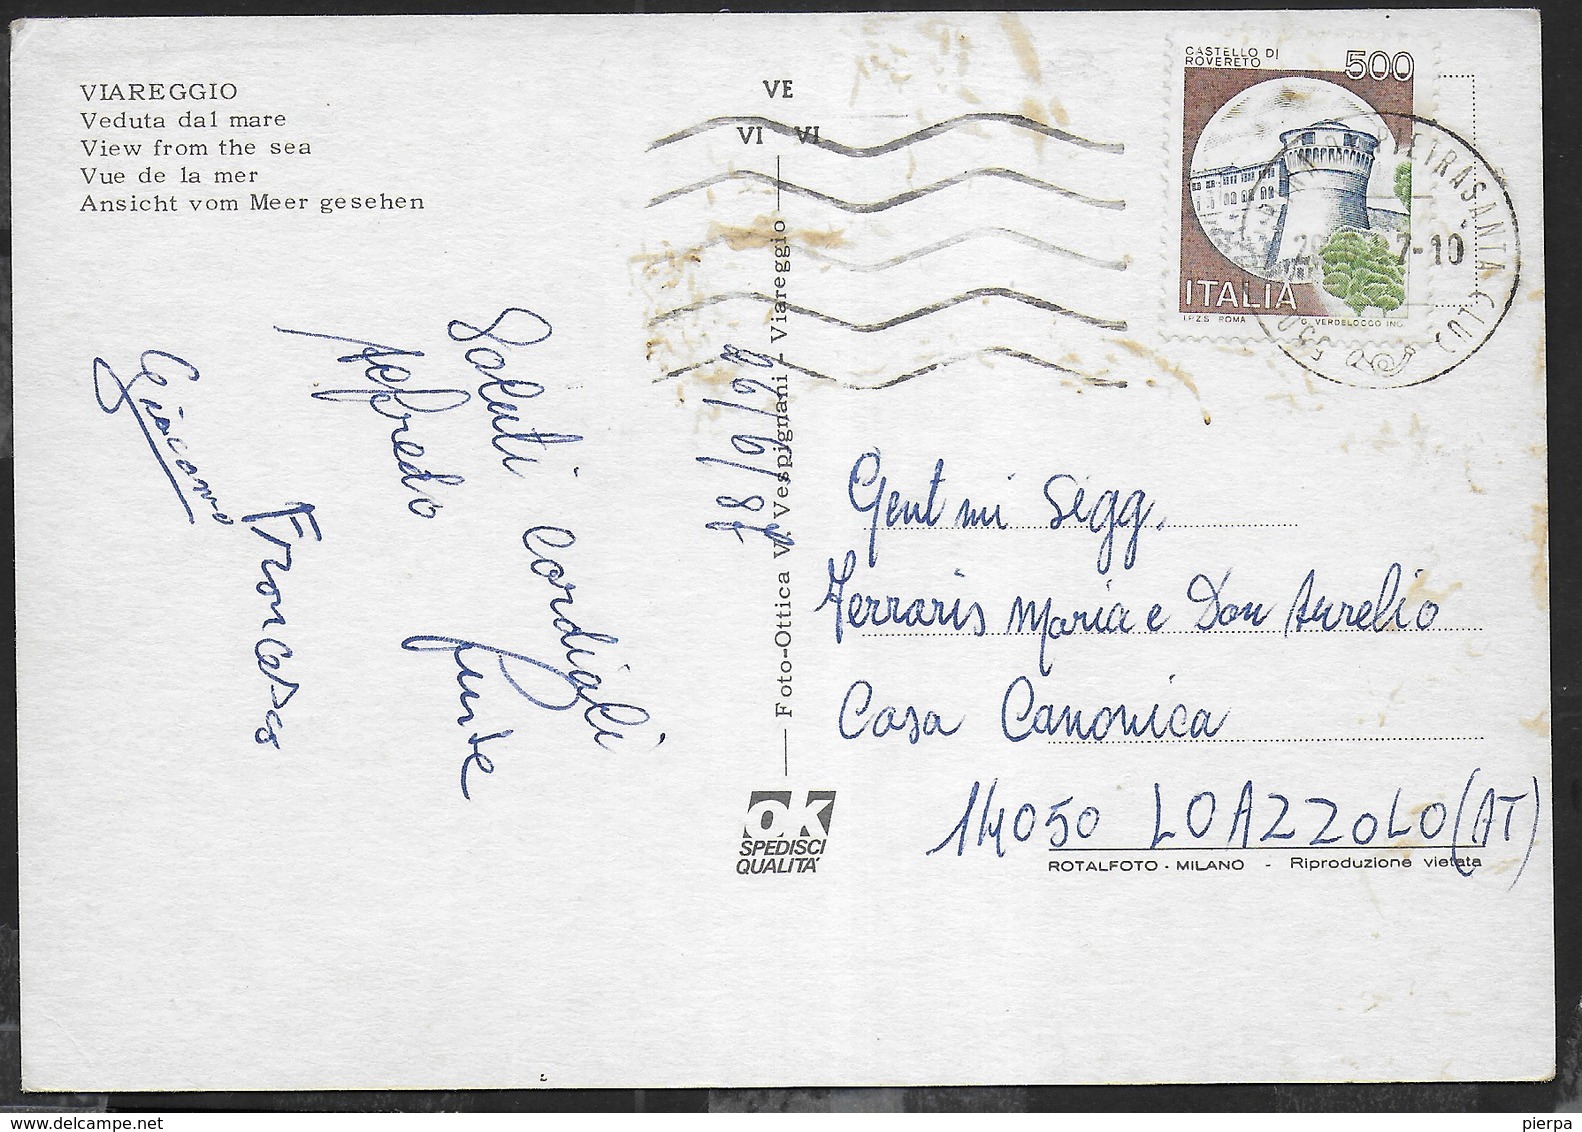 VIAREGGIO
Veduta dal mare
View from the sea
Vue de la mer
Ansicht vom Meer gesehen
VE
VI VI
Foto-Ottica V. Vespignani - Viareggio
CASTELLO DI
ROVERETO
500
ITALIA
I.P.Z.S. ROMA G. VERDELOCCO INC.
PIETRASANTA (LU)
7-10
26/6/87
Saluti cordiali
Alfredo
Giacomo
Francesca
Gent mi Sigg.
Ferraris Maria e Don Aurelio
Casa Canonica
14050 LOAZZOLO (AT)
OK
SPEDISCI
QUALITÀ
ROTALFOTO - MILANO - Riproduzione vietata
pierpa